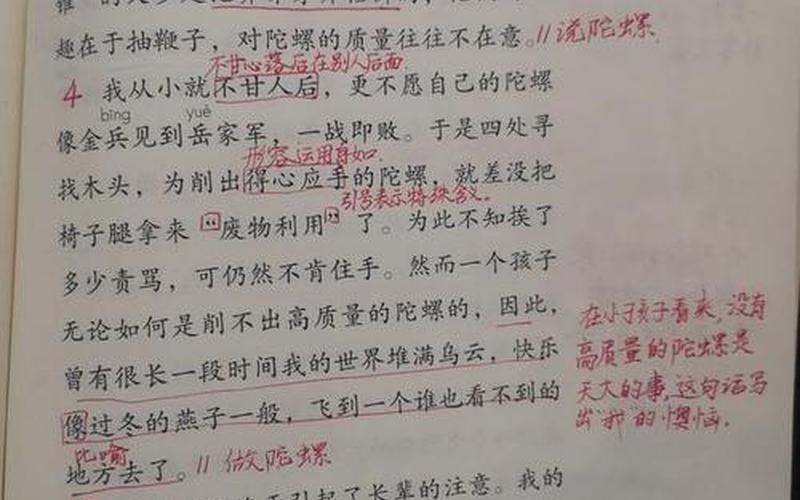 趣在于抽鞭子，对陀螺的质量往往不在意。// 说陀螺
不甘心落后在别人后面
4 我从小就不甘人后，更不愿自己的陀螺
bīng yuè
像金兵见到岳家军，一战即败。于是四处寻
形容运用自如.
找木头，为削出得心应手的陀螺，就差没把
引号表示特殊含义。
椅子腿拿来“废物利用”了。为此不知挨了
多少责骂，可仍然不肯住手。然而一个孩子
无论如何是削不出高质量的陀螺的，因此，
曾有很长一段时间我的世界堆满乌云，快乐
像过冬的燕子一般，飞到一个谁也看不到的
比喻
地方去了。// 做陀螺
引起了长辈的注意。我的
在小孩子看来，没有
高质量的陀螺是
天大的事，这句话写
出“我”的懊恼.